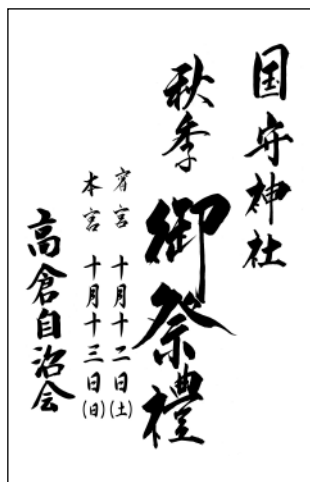 国守神社
秋季 御祭禮
宵宮 十月十二日(土)
本宮 十月十三日(日)
高倉自治会